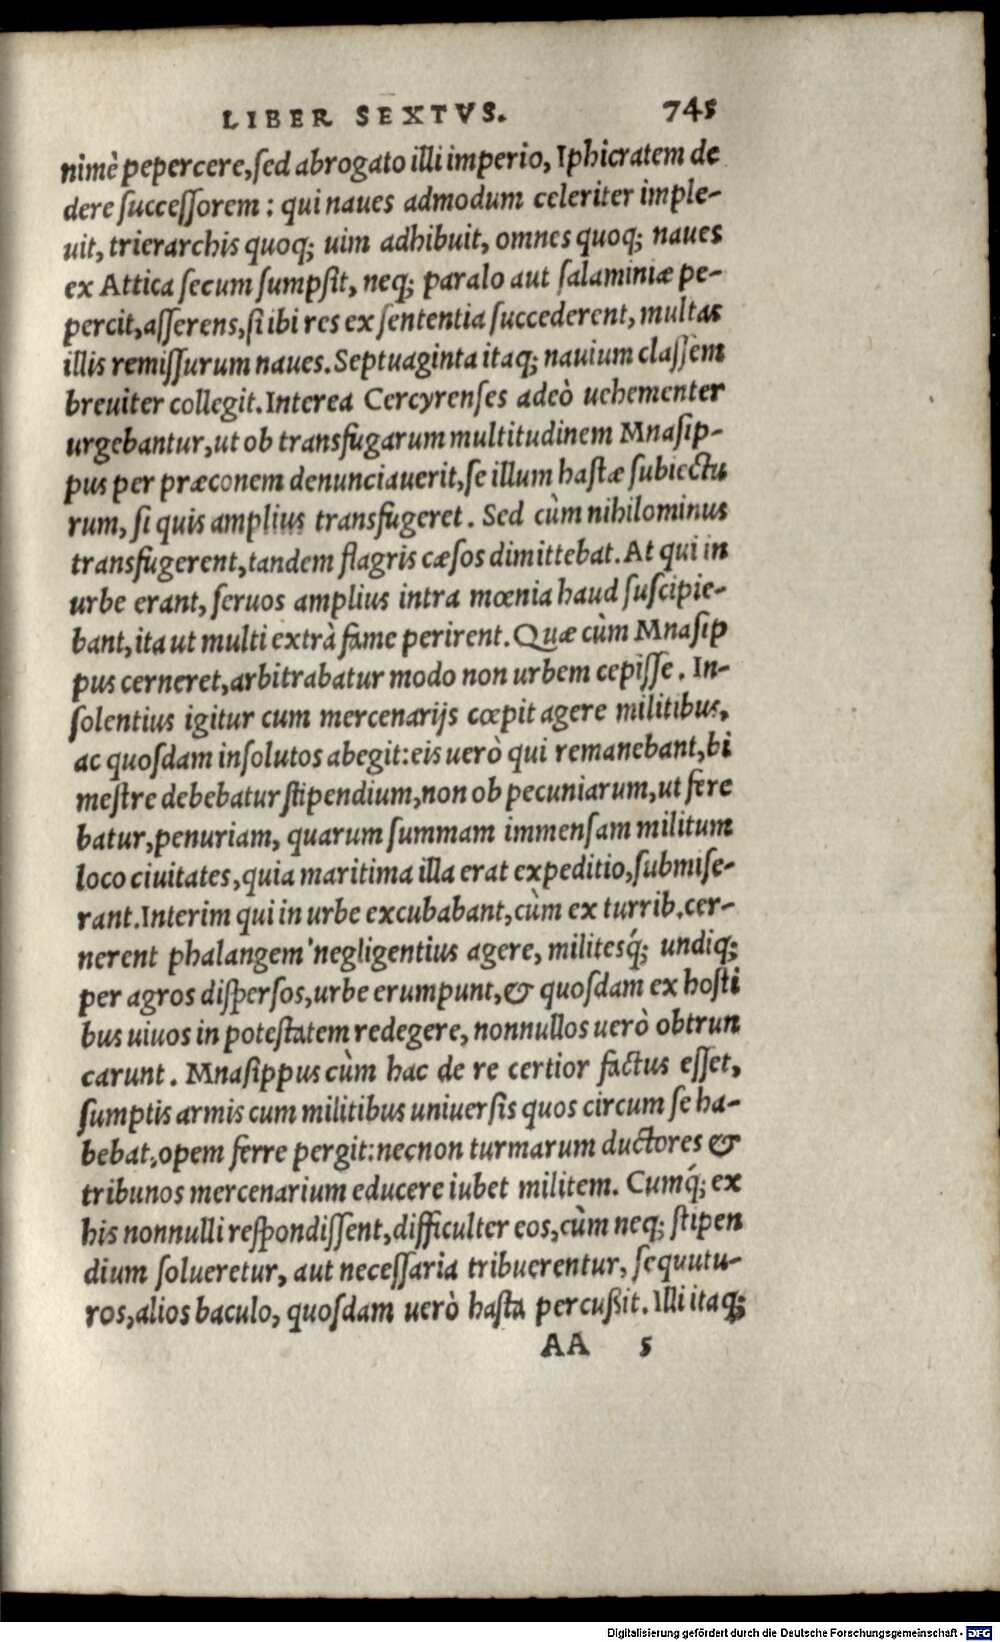 LIBER SEXTVS. 745
nimè pepercere, ſed abrogato illi imperio, Iphicratem de
dere ſucceſſorem: qui naues admodum celeriter imple-
uit, trierarchis quoq; uim adhibuit, omnes quoq; naues
ex Attica ſecum ſumpſit, neq; paralo aut ſalaminiæ pe-
percit, aſſerens, ſi ibi res ex ſententia ſuccederent, multas
illis remiſſurum naues. Septuaginta itaq; nauium claſſem
breuiter collegit. Interea Cercyrenſes adeò uehementer
urgebantur, ut ob transfugarum multitudinem Mnaſip-
pus per præconem denunciauerit, ſe illum haſtæ ſubiectu
rum, ſi quis amplius transfugeret. Sed cùm nihilominus
transfugerent, tandem flagris cæſos dimittebat. At qui in
urbe erant, ſeruos amplius intra mœnia haud ſuſcipie-
bant, ita ut multi extrà fame perirent. Quæ cùm Mnaſip
pus cerneret, arbitrabatur modo non urbem cepiſſe. In-
ſolentius igitur cum mercenarijs cœpit agere militibus,
ac quoſdam inſolutos abegit: eis uerò qui remanebant, bi
meſtre debebatur ſtipendium, non ob pecuniarum, ut fere
batur, penuriam, quarum ſummam immenſam militum
loco ciuitates, quia maritima illa erat expeditio, ſubmiſe-
rant. Interim qui in urbe excubabant, cùm ex turrib. cer-
nerent phalangem negligentius agere, militesq́; undiq;
per agros diſperſos, urbe erumpunt, & quoſdam ex hoſti
bus uiuos in poteſtatem redegere, nonnullos uerò obtrun
carunt. Mnaſippus cùm hac de re certior factus eſſet,
ſumptis armis cum militibus uniuerſis quos circum ſe ha-
bebat, opem ferre pergit: necnon turmarum ductores &
tribunos mercenarium educere iubet militem. Cumq́; ex
his nonnulli reſpondiſſent, difficulter eos, cùm neq; ſtipen
dium ſolueretur, aut neceſſaria tribuerentur, ſequutu-
ros, alios baculo, quoſdam uerò haſta percußit. Illi itaq;
AA 5
Digitalisierung gefördert durch die Deutsche Forschungsgemeinschaft - DFG